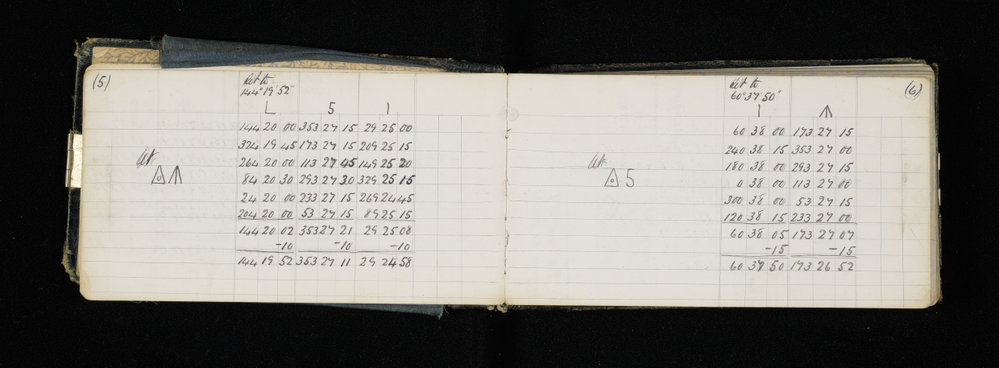 (5)
Set to
144° 19' 52"
L 5 1
144 20 00 353 27 15 29 25 00
324 19 45 173 27 15 209 25 15
264 20 00 113 27 45 149 25 20
84 20 30 293 27 30 329 25 15
24 20 00 233 27 15 269 24 45
204 20 00 53 27 15 89 25 15
144 20 02 353 27 21 29 25 08
-10 -10 -10
144 19 52 353 27 11 29 24 58
At
(6)
Set to
60° 37' 50"
1
60 38 00 173 27 15
240 38 15 353 27 00
180 38 00 293 27 15
0 38 00 113 27 00
300 38 00 53 27 15
120 38 15 233 27 00
60 38 05 173 27 07
-15 -15
60 37 50 173 26 52
At
5